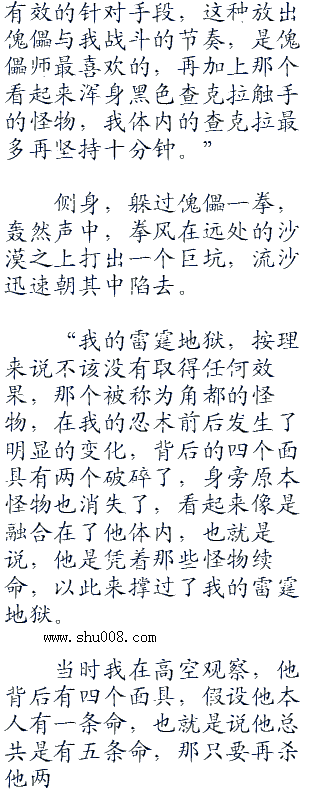 有效的针对手段，这种放出
傀儡与我战斗的节奏，是傀
儡师最喜欢的，再加上那个
看起来浑身黑色查克拉触手
的怪物，我体内的查克拉最
多再坚持十分钟。”
侧身，躲过傀儡一拳，
轰然声中，拳风在远处的沙
漠之上打出一个巨坑，流沙
迅速朝其中陷去。
“我的雷霆地狱，按理
来说不该没有取得任何效
果，那个被称为角都的怪
物，在我的忍术前后发生了
明显的变化，背后的四个面
具有两个破碎了，身旁原本
怪物也消失了，看起来像是
融合在了他体内，也就是
说，他是凭着那些怪物续
命，以此来撑过了我的雷霆
地狱。
www.shu008.com
当时我在高空观察，他
背后有四个面具，假设他本
人有一条命，也就是说他总
共是有五条命，那只要再杀
他两